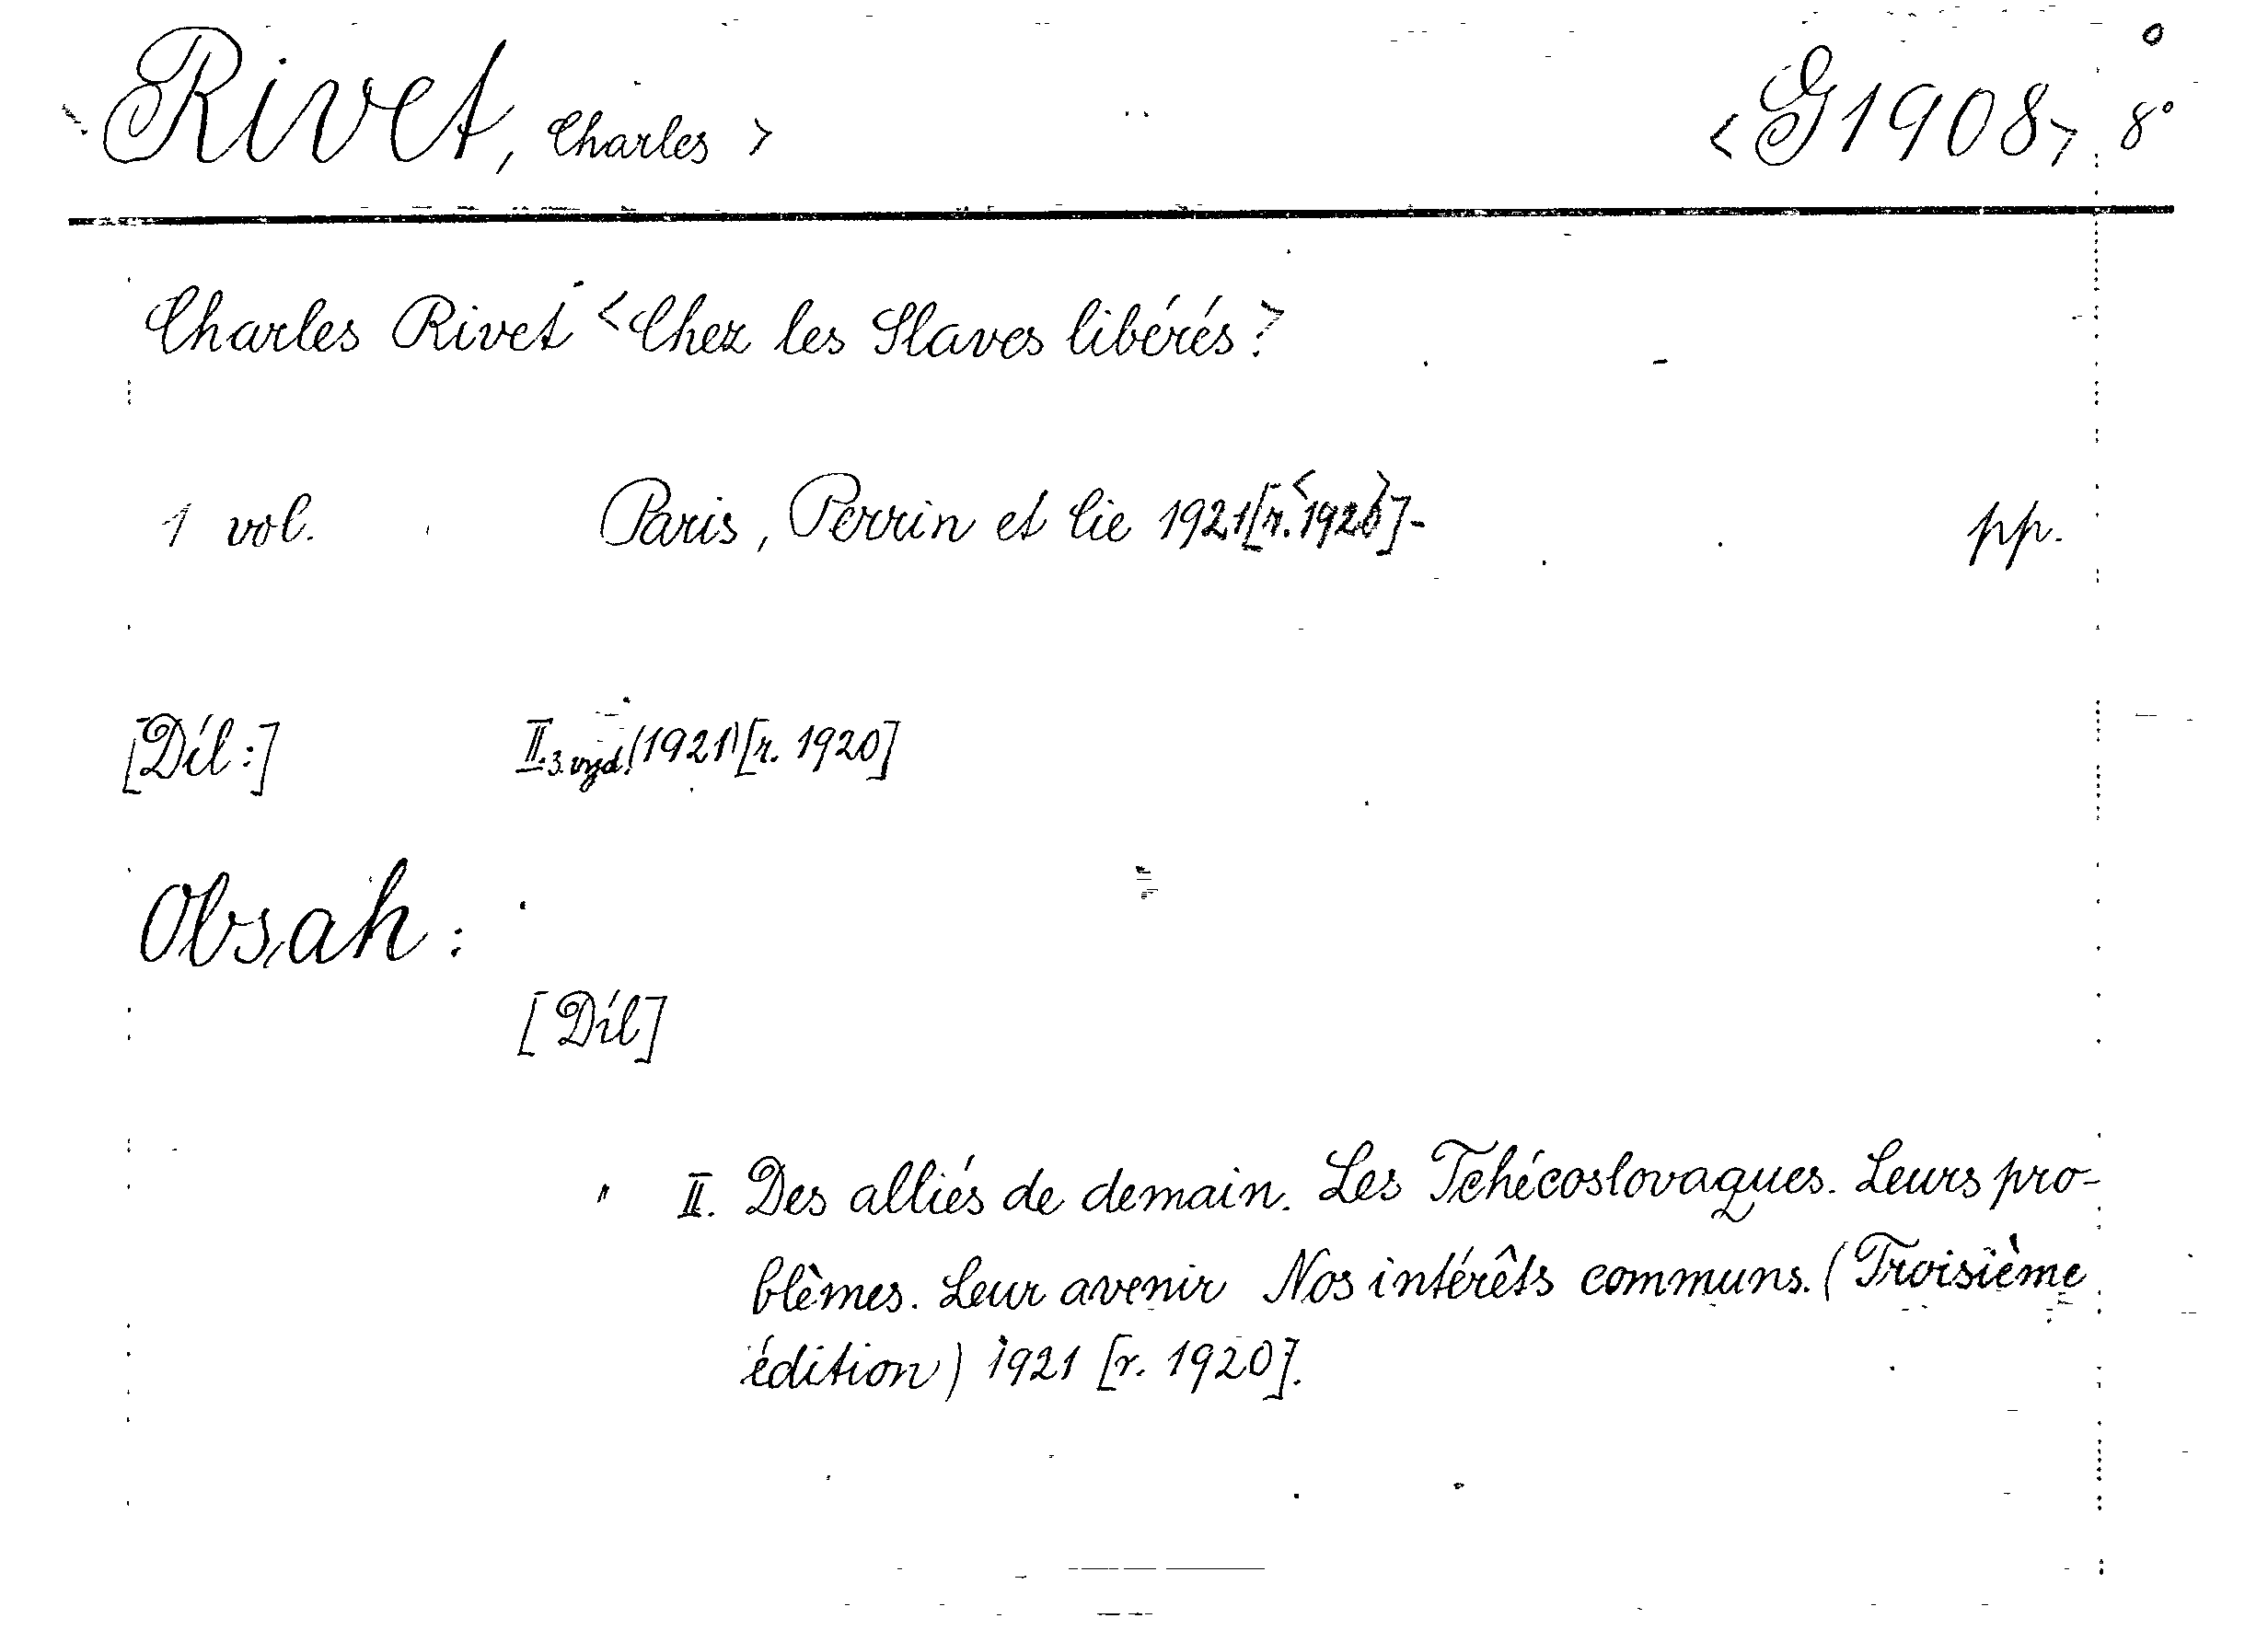 Rivet, Charles > <G1908> 8°
Charles Rivet <Chez les Slaves libérés>
1 vol. Paris, Perrin et Cie 1921[r.<1920>]- pp.
[Díl:] II.3.vyd.(1921)[r. 1920]
Obsah:
[Díl]
" II. Des alliés de demain. Les Tchécoslovaques. Leurs pro-
blèmes. Leur avenir Nos intérêts communs. (Troisième
édition) 1921 [r. 1920].